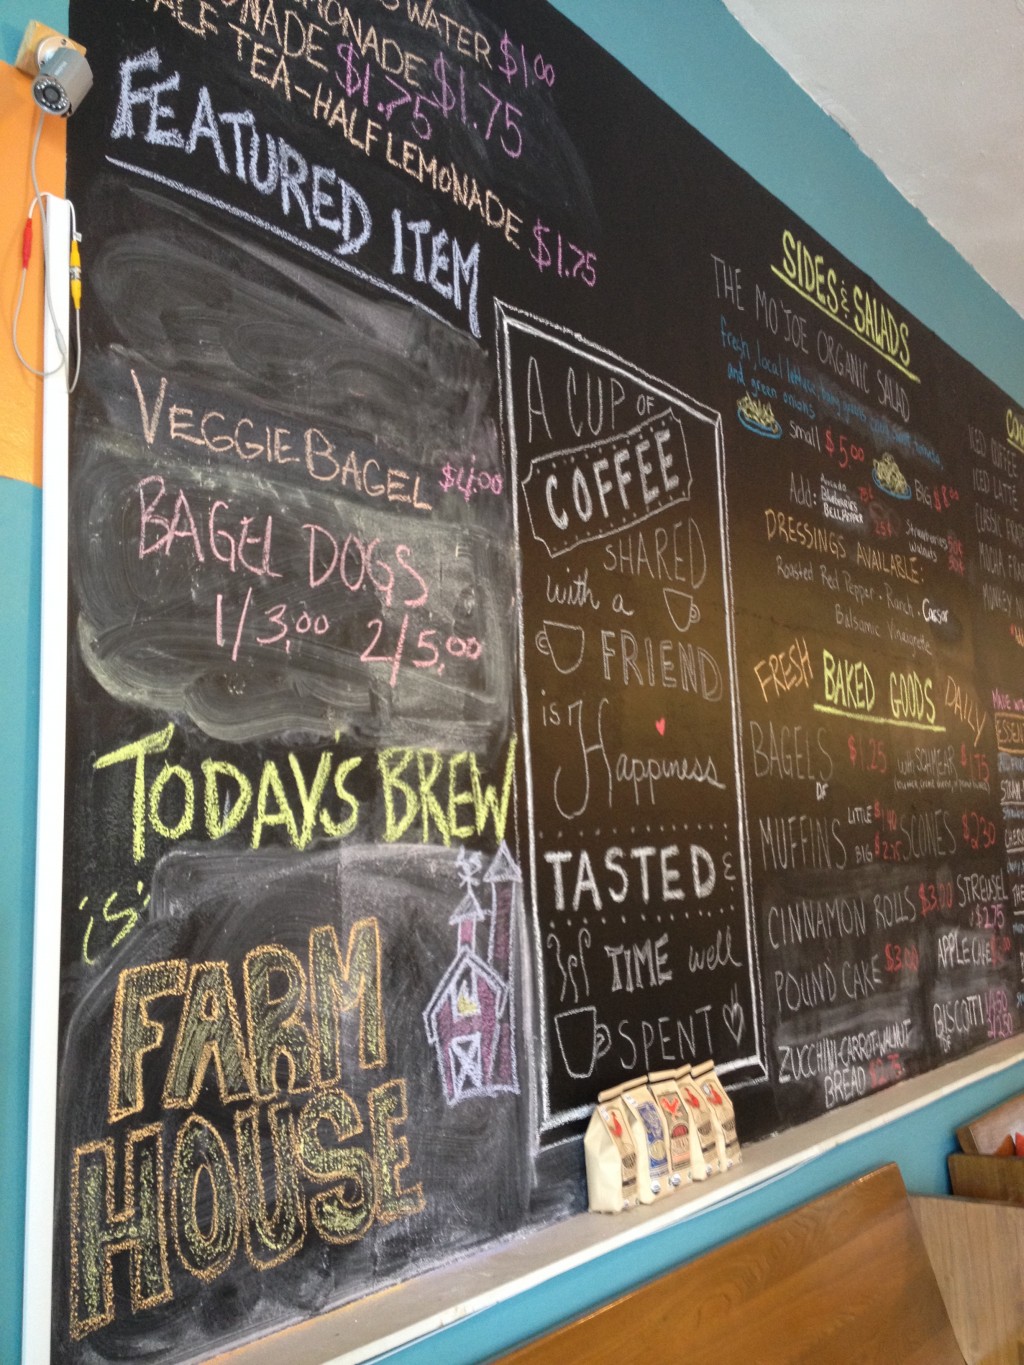 WATER $1.00
LEMONADE $1.75
$1.75
HALF TEA-HALF LEMONADE $1.75
FEATURED ITEM
VEGGIE BAGEL $4.00
BAGEL DOGS
1/3.00 2/5.00
TODAY'S BREW
is
FARM
HOUSE
A CUP OF
COFFEE
SHARED
with a
FRIEND
is
Happiness
TASTED &
TIME well
SPENT
SIDES & SALADS
THE MOJOE ORGANIC SALAD
fresh, local lettuce,
and green onions
small $5.00 BIG $8.00
Add:
Blueberries
Strawberries
walnuts
DRESSINGS AVAILABLE:
Roasted Red Pepper - Ranch - Caesar
Balsamic Vinaigrette
FRESH BAKED GOODS DAILY
BAGELS $1.25 with SCHMEAR $1.75
MUFFINS LITTLE $1.40
BIG $2.75 SCONES $2.30
CINNAMON ROLLS $3.00 STREUSEL
$2.75
POUND CAKE $3.00 APPLE CAKE
BISCOTTI
ZUCCHINI-CARROT-WALNUT
BREAD $2.75
ICED COFFEE
ICED LATTE
CLASSIC
MOCHA
MONKEY